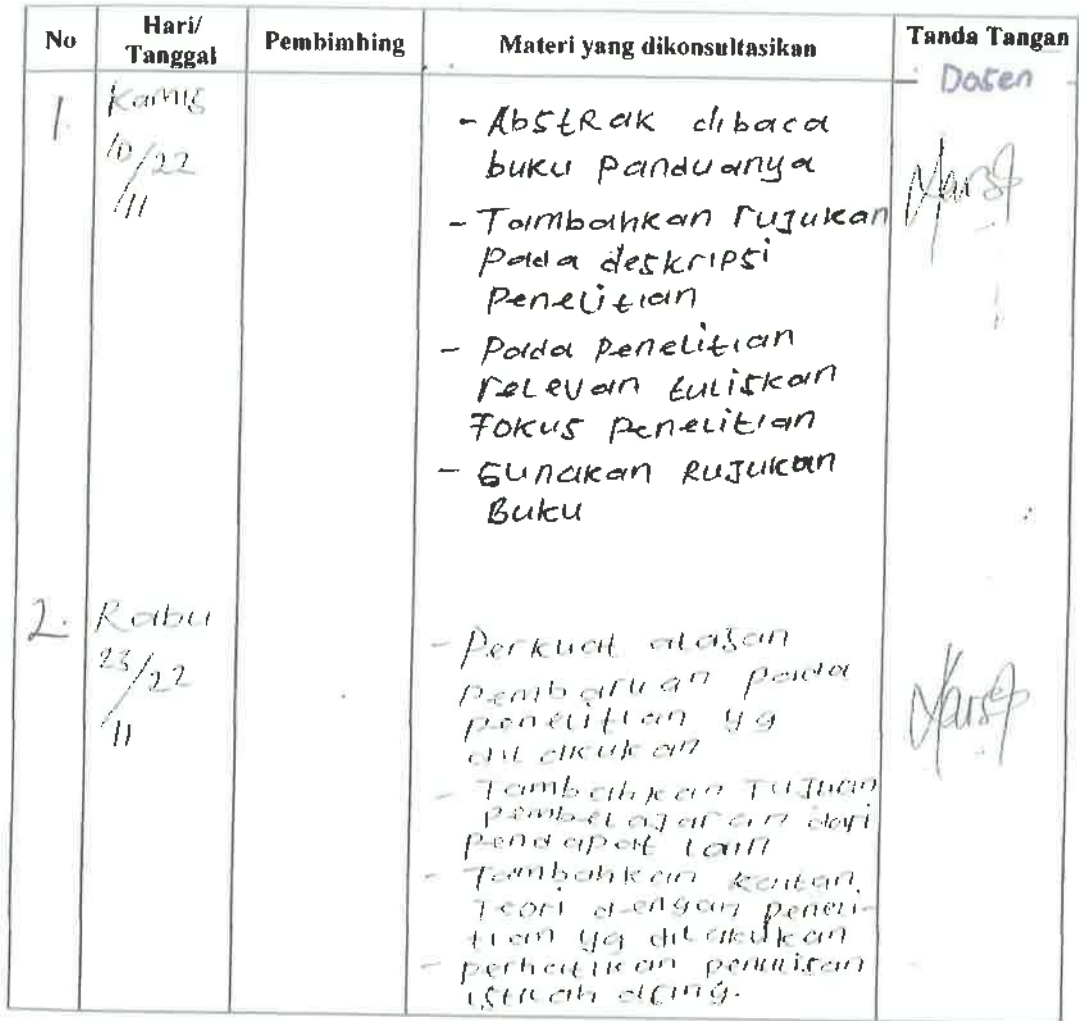 No Hari/ Tanggal Pembimbing Materi yang dikonsultasikan Tanda Tangan
Dosen
1. Kamis
10/22
/11
- Abstrak dibaca
buku panduanya
- Tambahkan rujukan
pada deskripsi
penelitian
- Pada penelitian
relevan tuliskan
Fokus penelitian
- Gunakan Rujukan
Buku
2. Rabu
23/22
/11
- Perkuat alasan
pembaruan pada
penelitian yg
dilakukan
- Tambahkan Tujuan
pembelajaran dari
pendapat lain
- Tambahkan kaitan
Teori dengan peneli-
tian yg dilakukan
- perhatikan penulisan
istilah asing.